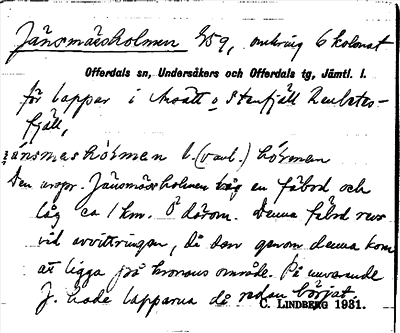 Jänsmässholmen 1/59, omkring 6 kolonat
Offerdals sn, Undersåkers och Offerdals tg, Jämtl. l.
för lappar i Ansätt o Stenfjäll Renbetes-
fjäll,
jänsmashólmen l. (vanl.) hólman
Den urspr. Jänsmässholmen låg en fäbod och
låg ca 1 km. Ö därom. Denna fäbod revs
vid avvittringen, då den genom denna kom
att ligga på kronans område. På nuvarande
J. hade lapparna då redan börjat
C. LINDBERG 1931.